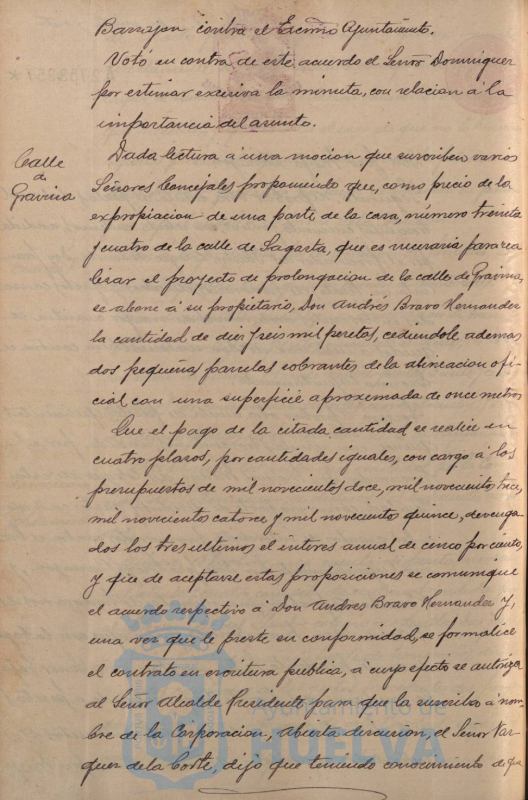 Barragan contra el Excmo Ayuntamiento.
Votó en contra de este acuerdo el Señor Dominguez
por estimar excesiva la minuta, con relacion á la
importancia del asunto.
Calle
de
Gravina
Dada lectura á una mocion que suscriben varios
Señores Concejales proponiendo que, como precio de la
expropiacion de una parte de la casa, número treinta
y cuatro de la calle de Sagasta, que es necesaria para rea
lizar el proyecto de prolongacion de la calle de Gravina,
se abone á su propietario, Don Andrés Bravo Hernandez
la cantidad de diez y seis mil pesetas, cediendole ademas
dos pequeñas parcelas sobrantes de la alineacion ofi-
cial con una superficie aproximada de once metros
Que el pago de la citada cantidad se realice en
cuatro plazos, por cantidades iguales, con cargo á los
presupuestos de mil novecientos doce, mil novecientos trece,
mil novecientos catorce y mil novecientos quince, devenga
dos los tres ultimos el interes anual de cinco por ciento,
y que de aceptarse estas proposiciones se comunique
el acuerdo respectivo á Don Andres Bravo Hernandez y,
una vez que le preste su conformidad, se formalice
el contrato en escritura publica, á cuyo efecto se autoriza
al Señor Alcalde Presidente para que la suscriba á nom-
bre de la Corporacion, abierta discusion, el Señor Vaz-
quez de la Corte, dijo que teniendo conocimiento de que
Ayuntamiento de
HUELVA